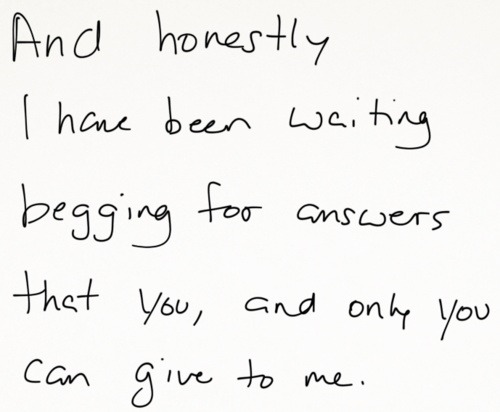 And honestly
I have been waiting
begging for answers
that you, and only you
can give to me.